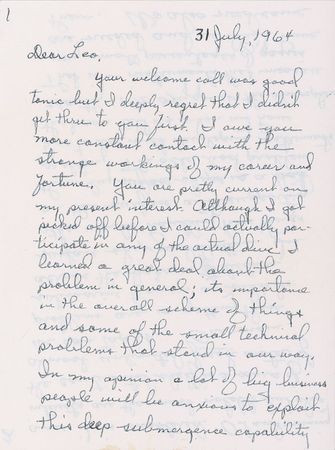 1
31 July, 1964
Dear Leo,
Your welcome call was good
tonic but I deeply regret that I didn't
get thru to you first. I owe you
more constant contact with the
strange workings of my career and
fortune. You are pretty current on
my present interest. Although I got
picked off before I could actually par-
ticipate in any of the actual dive I
learned a great deal about the
problem in general, its importance
in the overall scheme of things
and some of the small technical
problems that stand in our way.
In my opinion a lot of big business
people will be anxious to exploit
this deep submergence capability